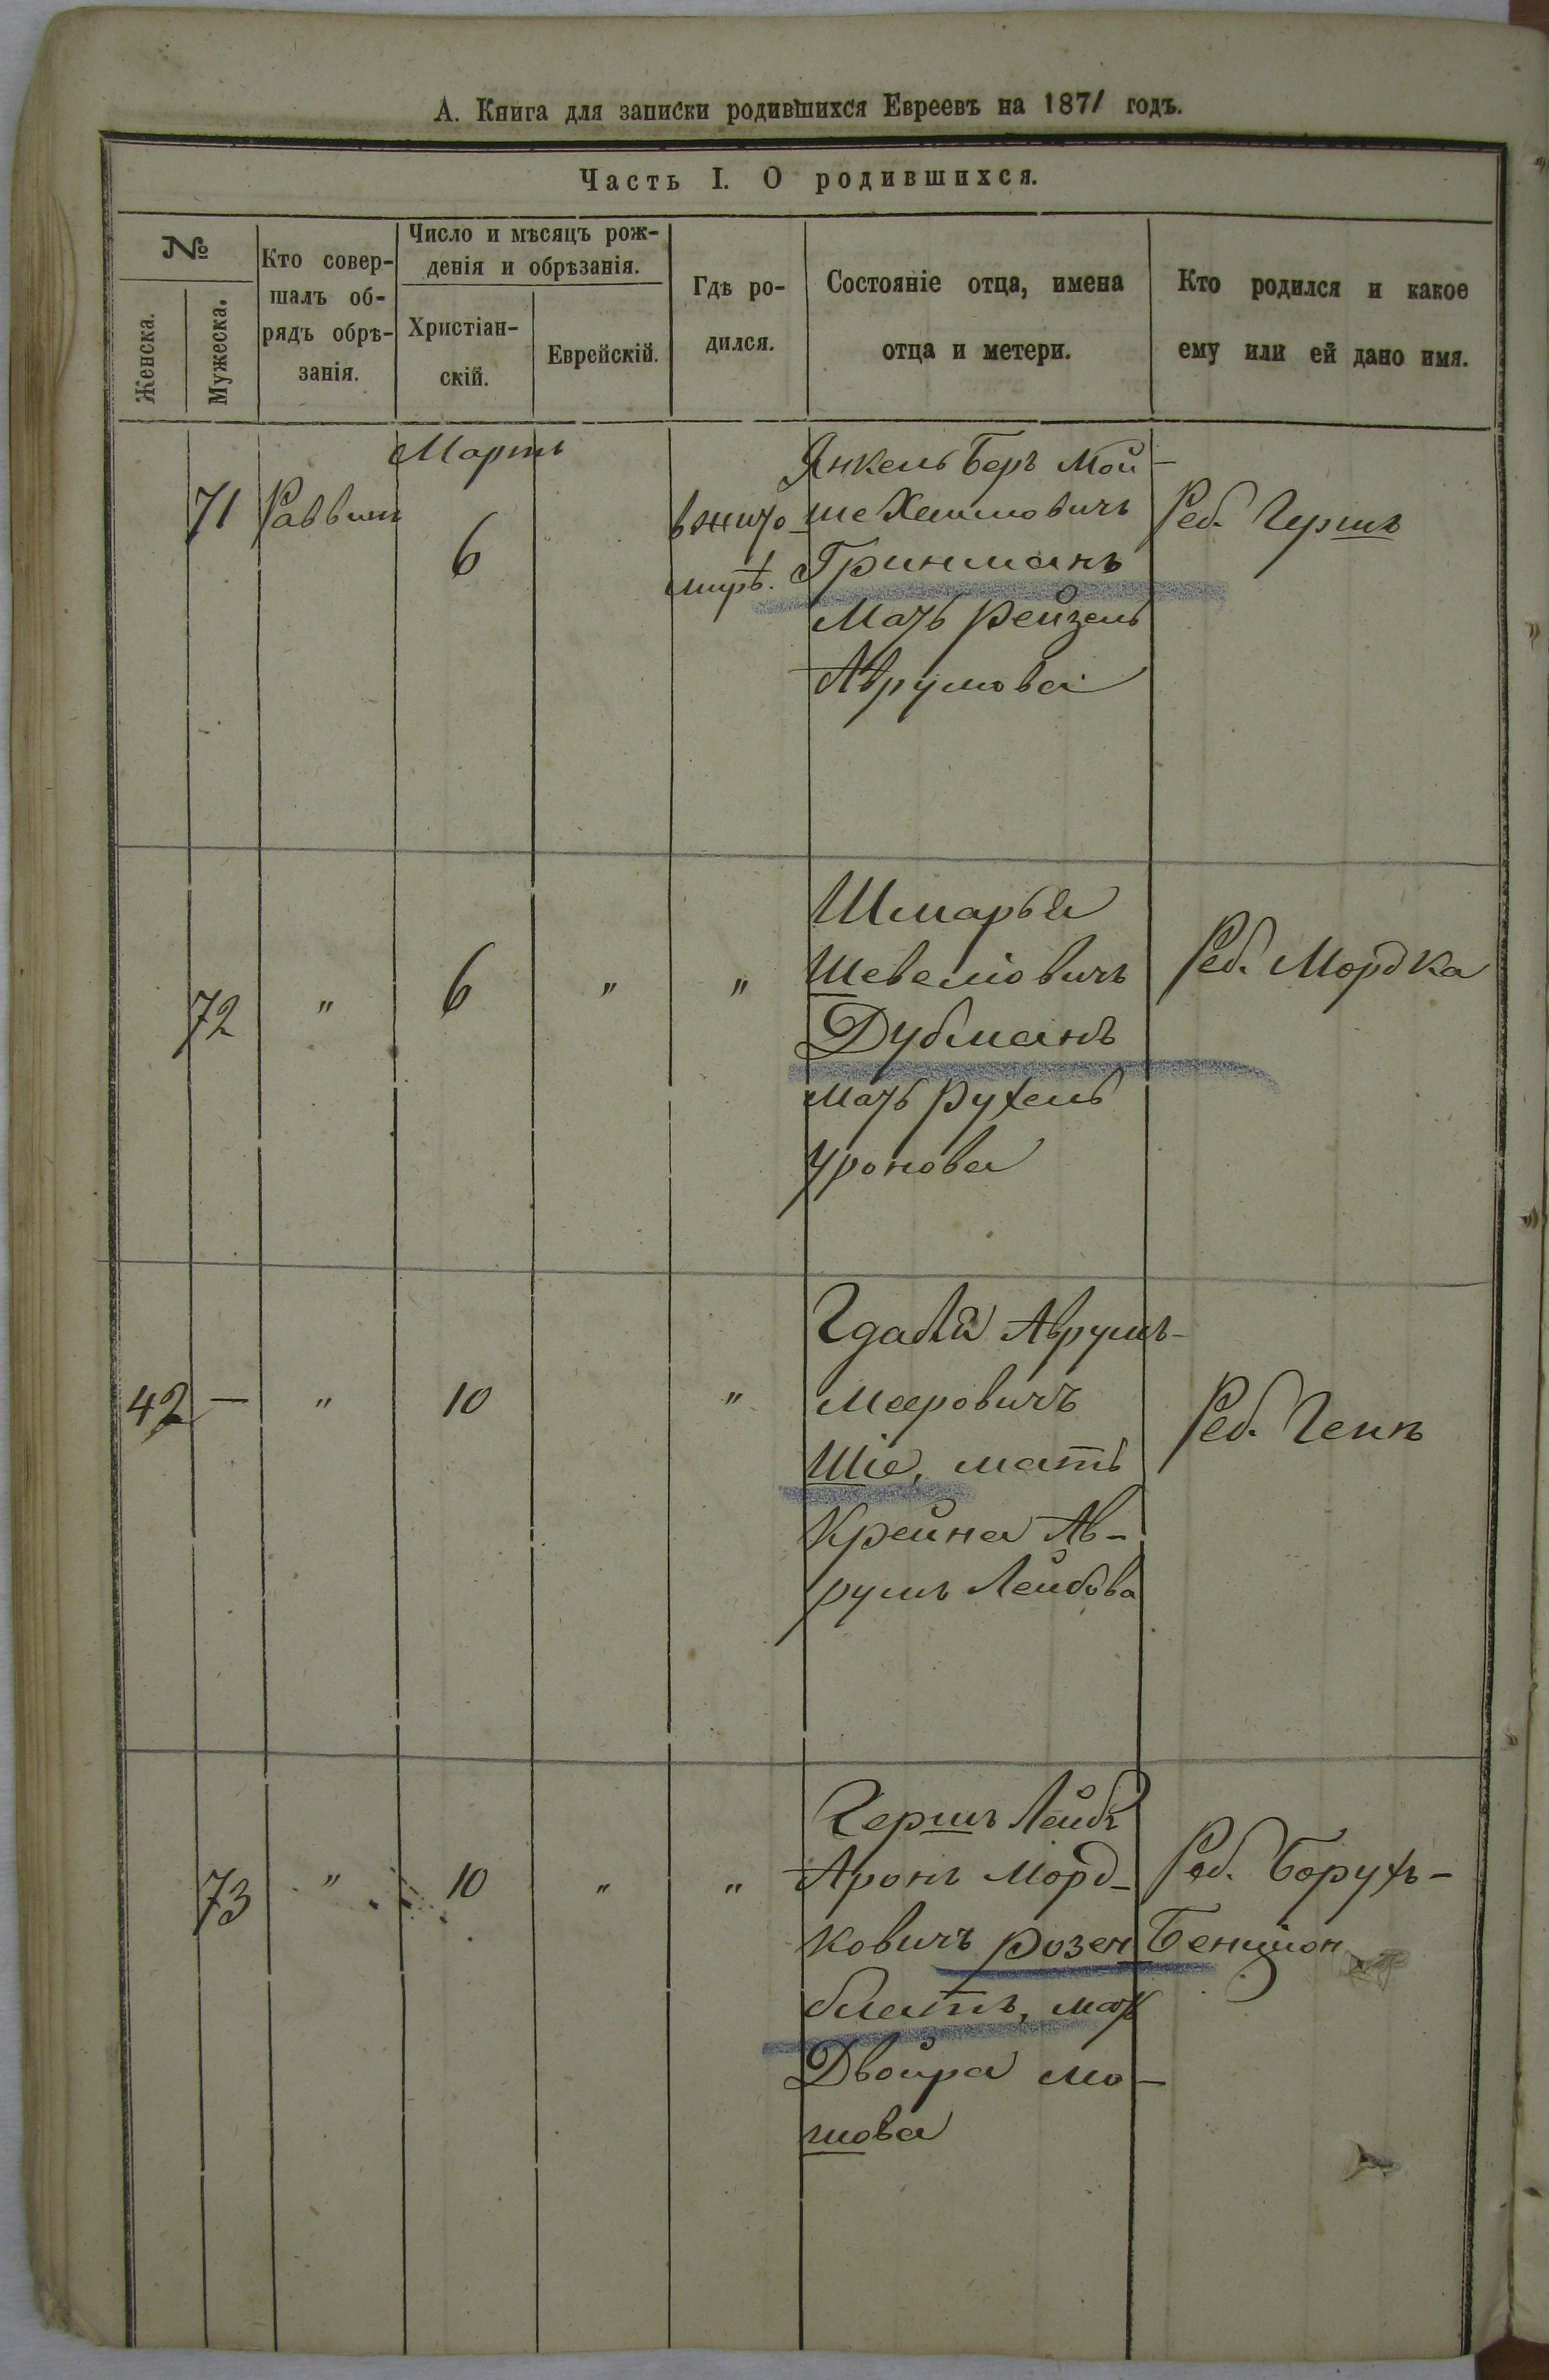 А. Книга для записки родившихся Евреевъ на 1871 годъ.
Часть I. О родившихся.
№
Женска.
Мужеска.
Кто совер-
шалъ об-
рядъ обрѣ-
занія.
Число и мѣсяцъ рож-
денія и обрѣзанія.
Христіан-
скій.
Еврейскій.
Гдѣ ро-
дился.
Состояніе отца, имена
отца и метери.
Кто родился и какое
ему или ей дано имя.
Мартъ
71 Раввинъ 6
в Жито-
мирѣ.
Янкель Беръ Мой-
ше Хаимовичъ
Гринманъ
Мать Рейзель
Аврумова
Реб. Гершъ
72 " 6 " "
Шмарья
Шевеліовичъ
Дубманъ
мать Рухель
Уронова
Реб. Мордка
42 — " 10 "
Гдалья Аврумъ-
Мееровичъ
Шіе, мать
Крейна Ав-
румъ Лейбова
Реб. Геня
73 " 10 " "
Гершъ Лейбъ
Аронъ Морд-
ковичъ Розен
блатъ, мать
Двойра Мо-
шова
Реб. Борухъ-
Бенціон